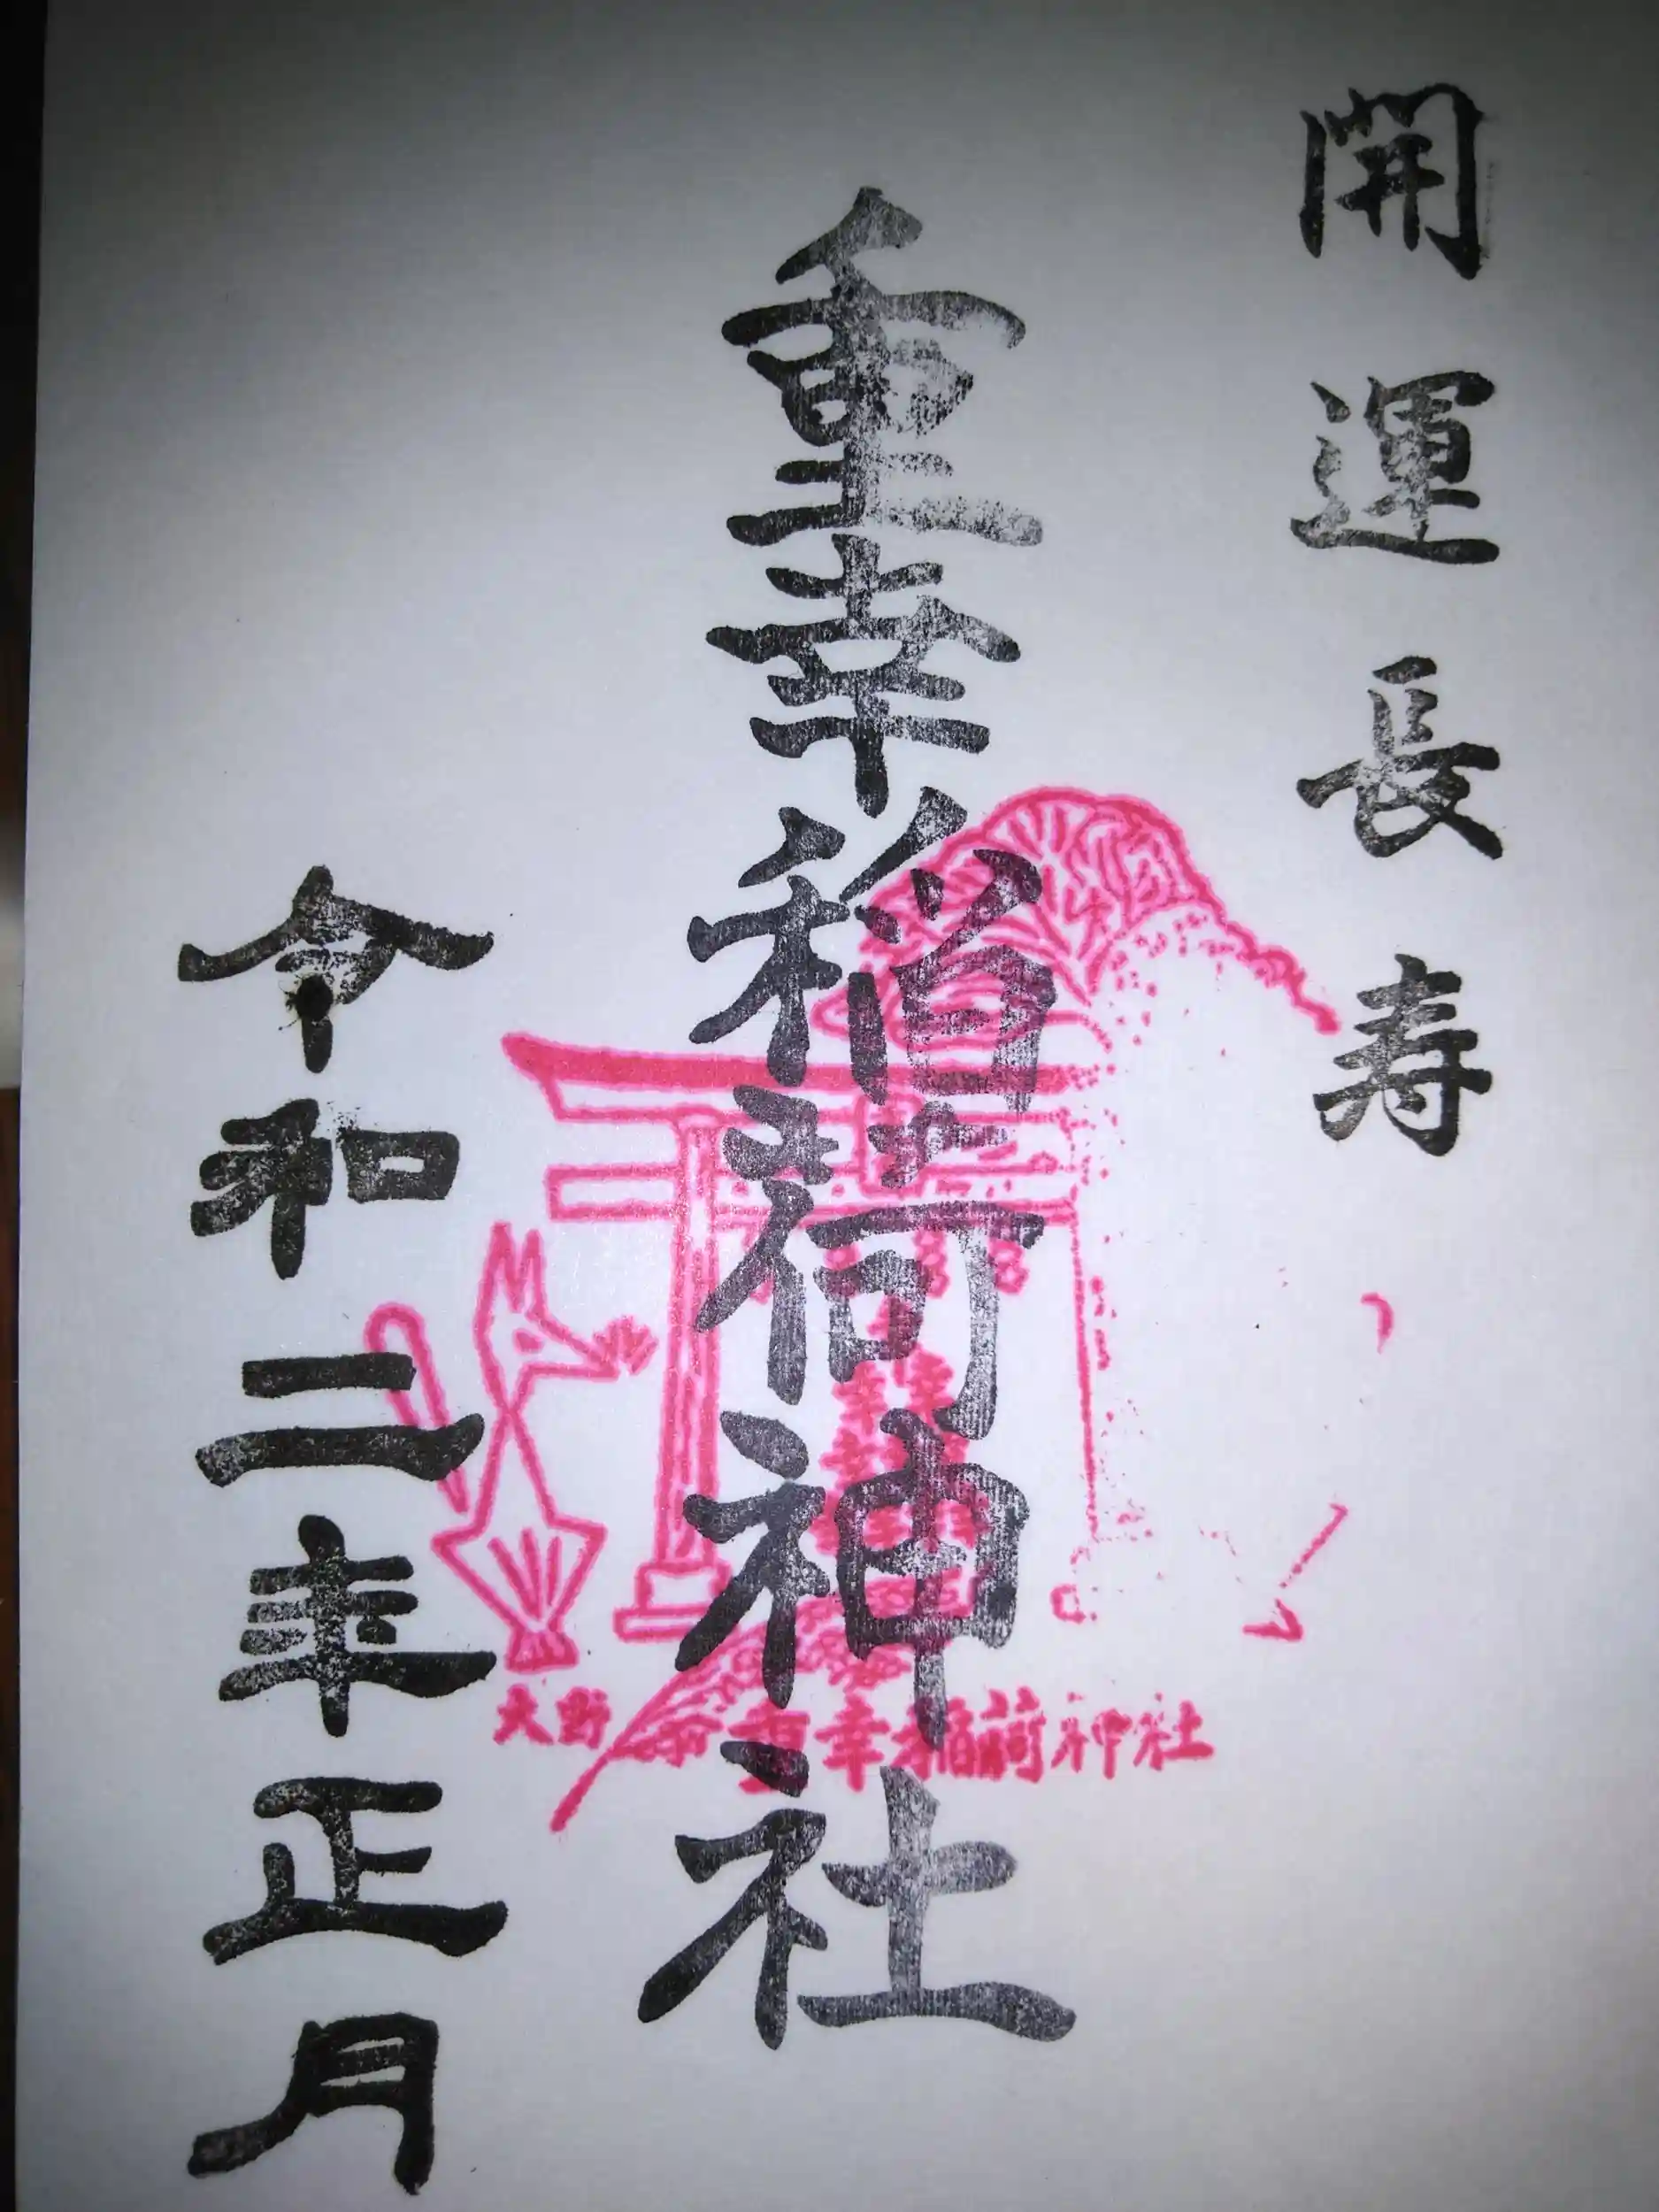 開運長寿
重幸稲荷神社
令和二年正月
大野 重幸稲荷神社